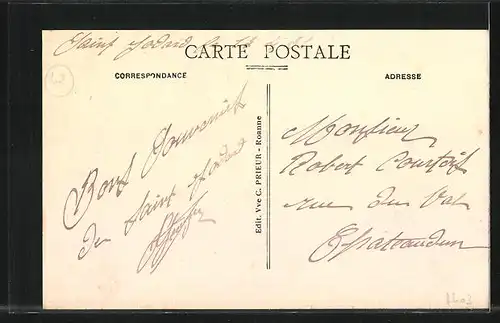 CARTE POSTALE
CORRESPONDANCE
ADRESSE
Bons Souvenirs
de Saint
Edit. Vve C. PRIEUR - Roanne
Monsieur
Robert Courtois
rue du Val
Chateaudun